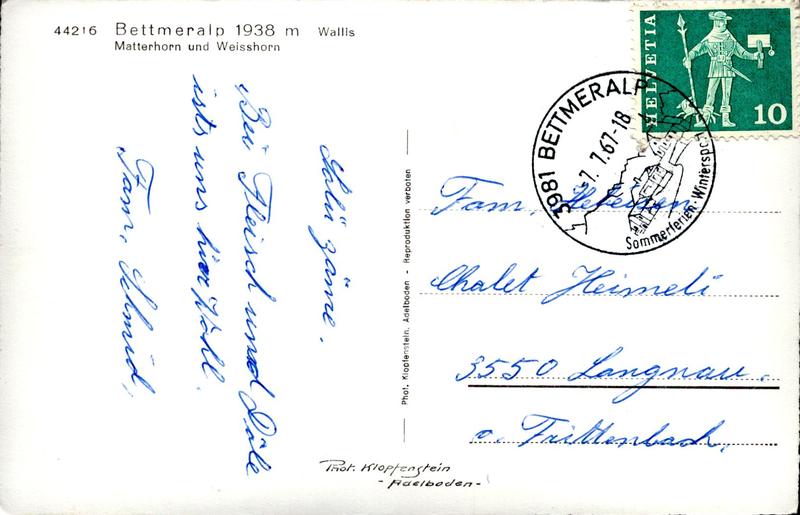 44216 Bettmeralp 1938 m Wallis
Matterhorn und Weisshorn
HELVETIA
10
3981 BETTMERALP
-7.7.67-18
Sommerferien · Wintersport
Salü zäme.
Bei Fleisch und Döle
ists uns hier Wohl.
Fam. Schmid,
Phot. Klopfenstein, Adelboden - Reproduktion verboten
Fam.
Chalet Heimeli
3550 Langnau.
o. Frittenbach,
Phot. Klopfenstein
- Adelboden -